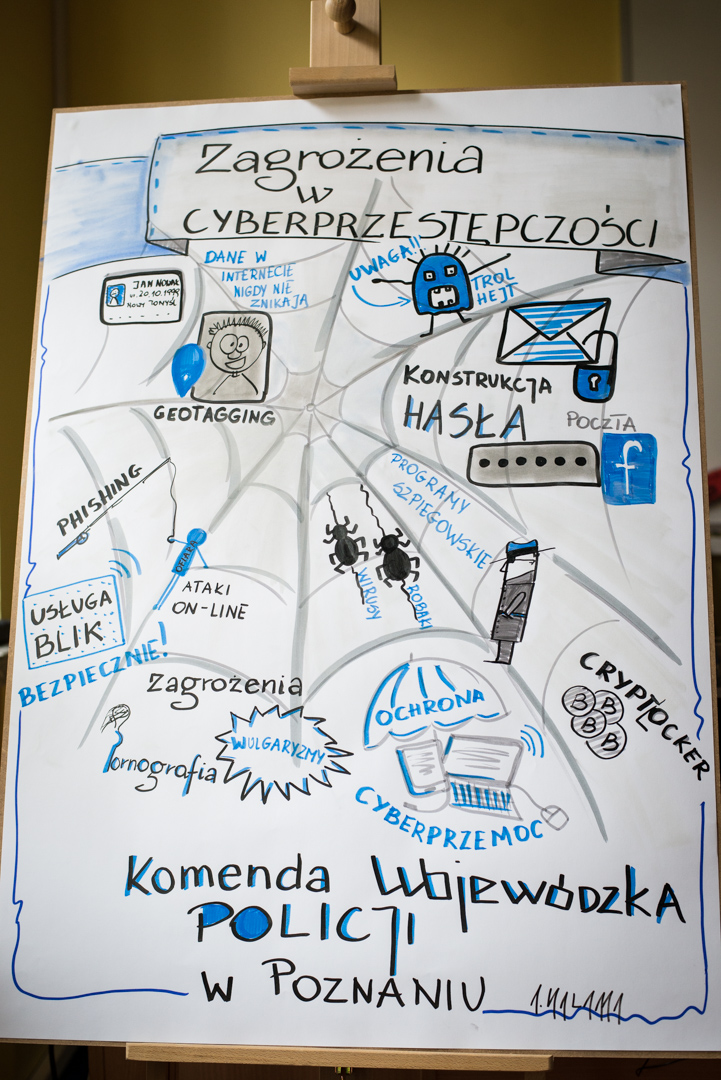 Zagrożenia
w
CYBERPRZESTĘPCZOŚCI
DANE W
INTERNECIE
NIGDY NIE
ZNIKAJĄ
UWAGA!!
TROL
HEJT
JAN NOWAK
20.10.1999
NOWY TOMYŚL
GEOTAGGING
KONSTRUKCJA
HASŁA
POCZTA
f
PHISHING
OFIARA
ATAKI
ON-LINE
PROGRAMY
SZPIEGOWSKIE
WIRUSY
ROBAKI
USŁUGA
BLIK
BEZPIECZNIE!
Zagrożenia
Pornografia
WULGARYZMY
OCHRONA
CYBERPRZEMOC
CRYPTLOCKER
B
B B
B
Komenda Wojewódzka
POLICJI
w POZNANIU